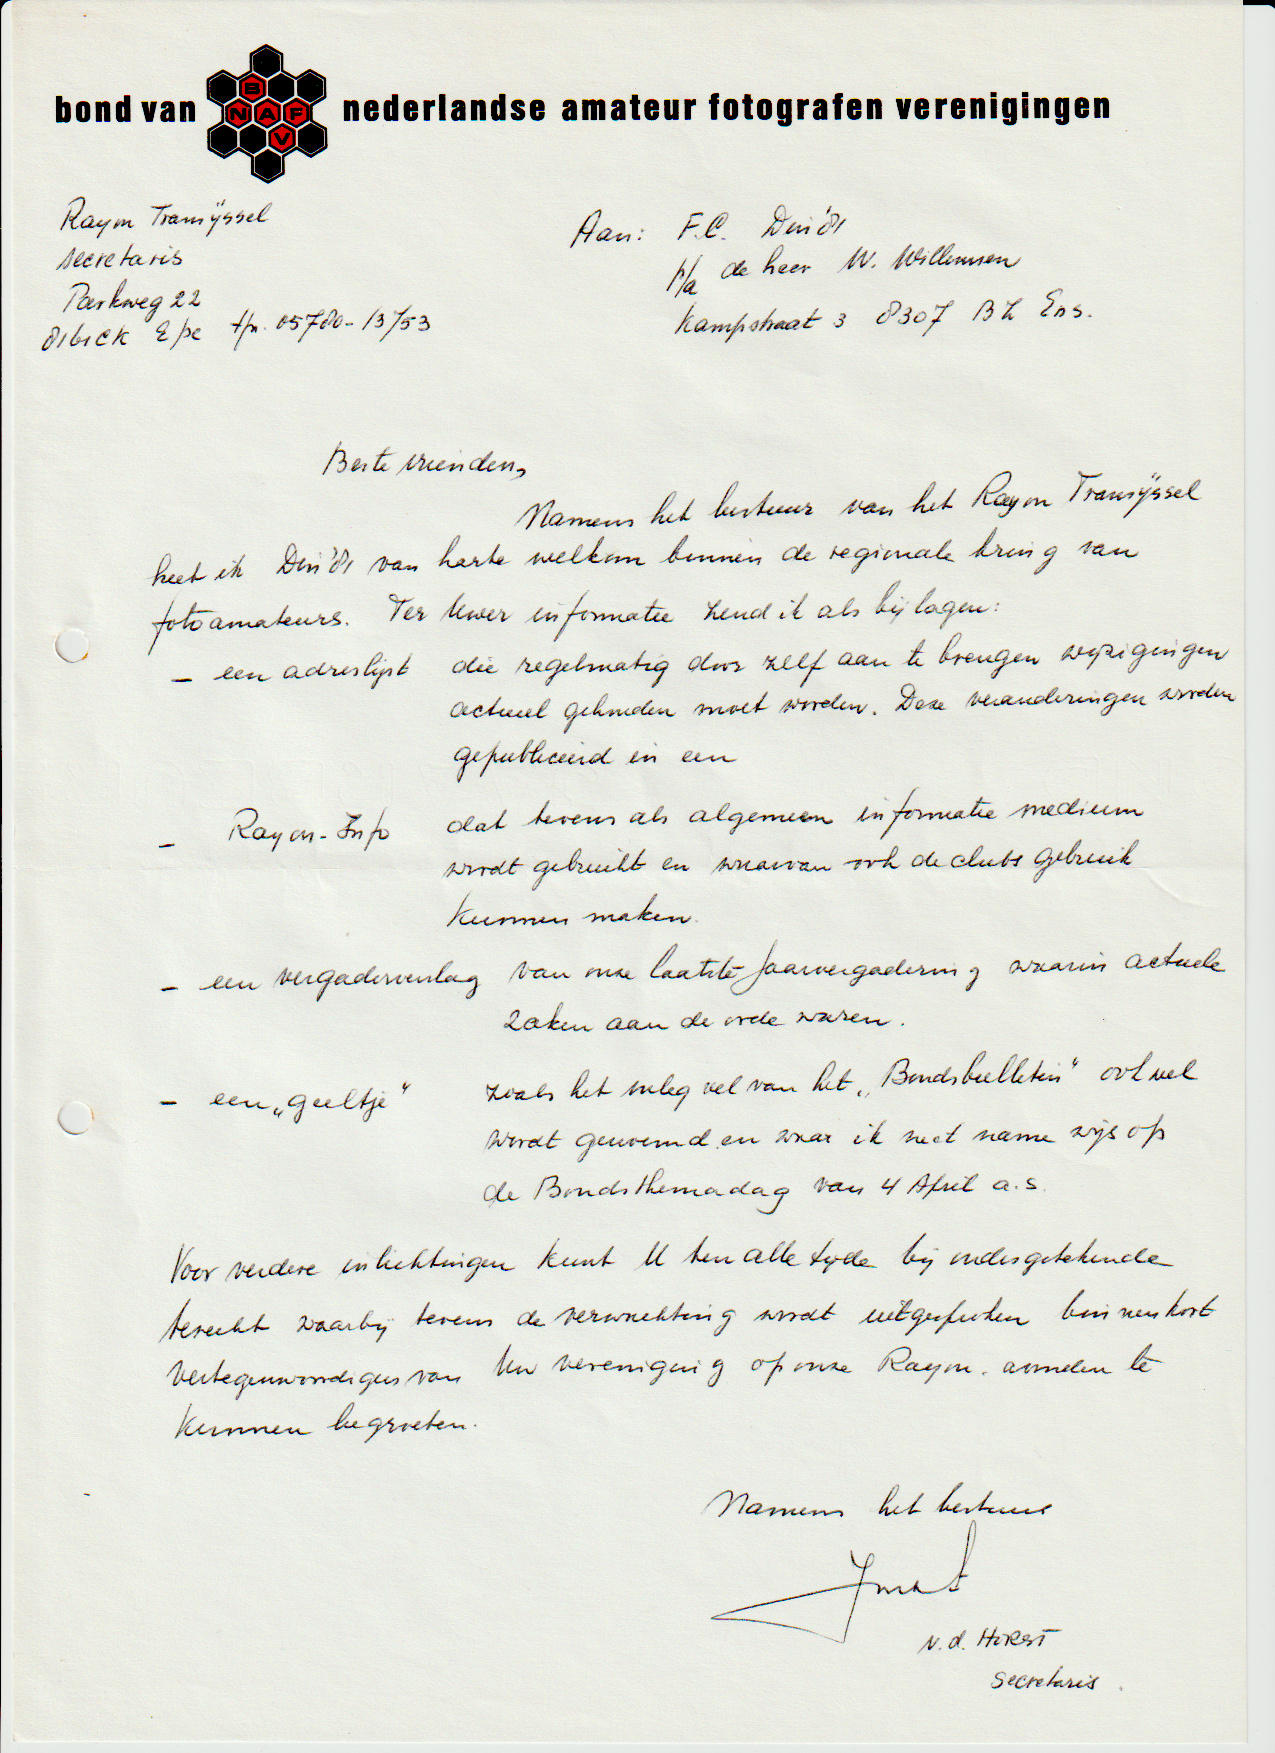 bond van BNAFV nederlandse amateur fotografen verenigingen
Rayon Transijssel
secretaris
Parkweg 22
8161CK Epe tfn. 05780-13753
Aan: F.C. Din'81
p/a de heer W. Willemsen
Kampstraat 3 8307 BL Ens.
Beste vrienden,
Namens het bestuur van het Rayon Transijssel
heet ik Din'81 van harte welkom binnen de regionale kring van
fotoamateurs. Ter Uwer informatie zend ik als bijlagen:
- een adreslijst die regelmatig door zelf aan te brengen wijzigingen
actueel gehouden moet worden. Deze veranderingen worden
gepubliceerd in een
- Rayon-Info dat tevens als algemeen informatie medium
wordt gebruikt en waarvan ook de clubs gebruik
kunnen maken.
- een vergaderverslag van onze laatste Jaarvergadering waarin actuele
zaken aan de orde waren.
- een „geeltje" zoals het inleg vel van het „Bondsbulletin" ook wel
wordt genoemd en waar ik met name wijs op
de Bondsthemadag van 4 April a.s.
Voor verdere inlichtingen kunt U ten alle tijde bij ondergetekende
terecht waarbij tevens de verwachting wordt uitgesproken binnenkort
vertegenwoordigers van Uw vereniging op onze Rayon. avonden te
kunnen begroeten.
Namens het bestuur
v.d. Horst
Secretaris